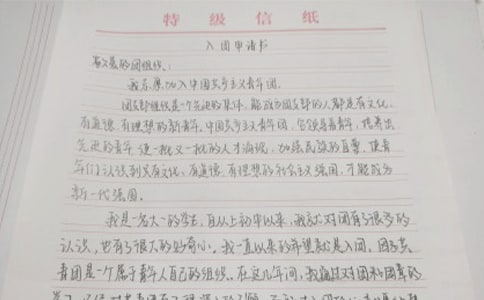 特级信纸
入团申请书
敬爱的团组织：
我志愿加入中国共产主义青年团。
团支部组织是一个先进的集体，能成为团支部的人都是有文化、
有道德、有理想的新青年。中国共产主义青年团，它领导着青年，培养出
先进的青年，使一批又一批的人才涌现，加强民族的质量，使青
年们认识到只有文化、有道德、有理想的社会主义强国，才能成为
新一代强国。
我是一名大一的学生，自从上初中以来，我就对团有了很多的
认识，也有了很大的好奇心。我一直以来的希望就是入团，因为共
青团是一个属于青年人自己的组织。在这几年间，我通过对团和团章的